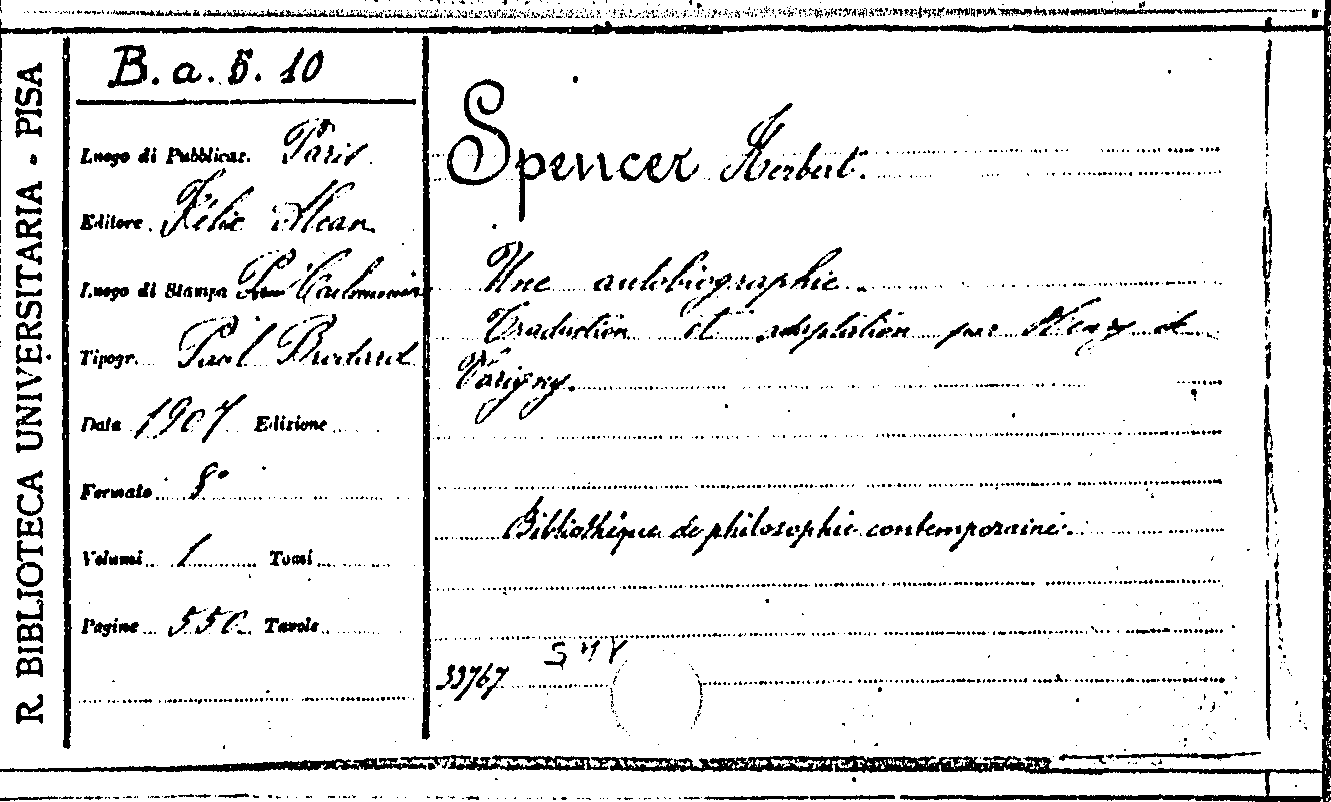 R. BIBLIOTECA UNIVERSITARIA - PISA
B. a. 5. 10
Luogo di Pubblicaz. Paris
Editore Félix Alcan
Luogo di Stampa Coulommiers
Tipogr. Paul Brodard
Data 1907 Edizione
Formato 8°
Volumi 1 Tomi
Pagine 550 Tavole
Spencer Herbert.
Une autobiographie.
Traduction et adaptation par Henry de
Varigny.
Bibliothèque de philosophie contemporaine.
33767